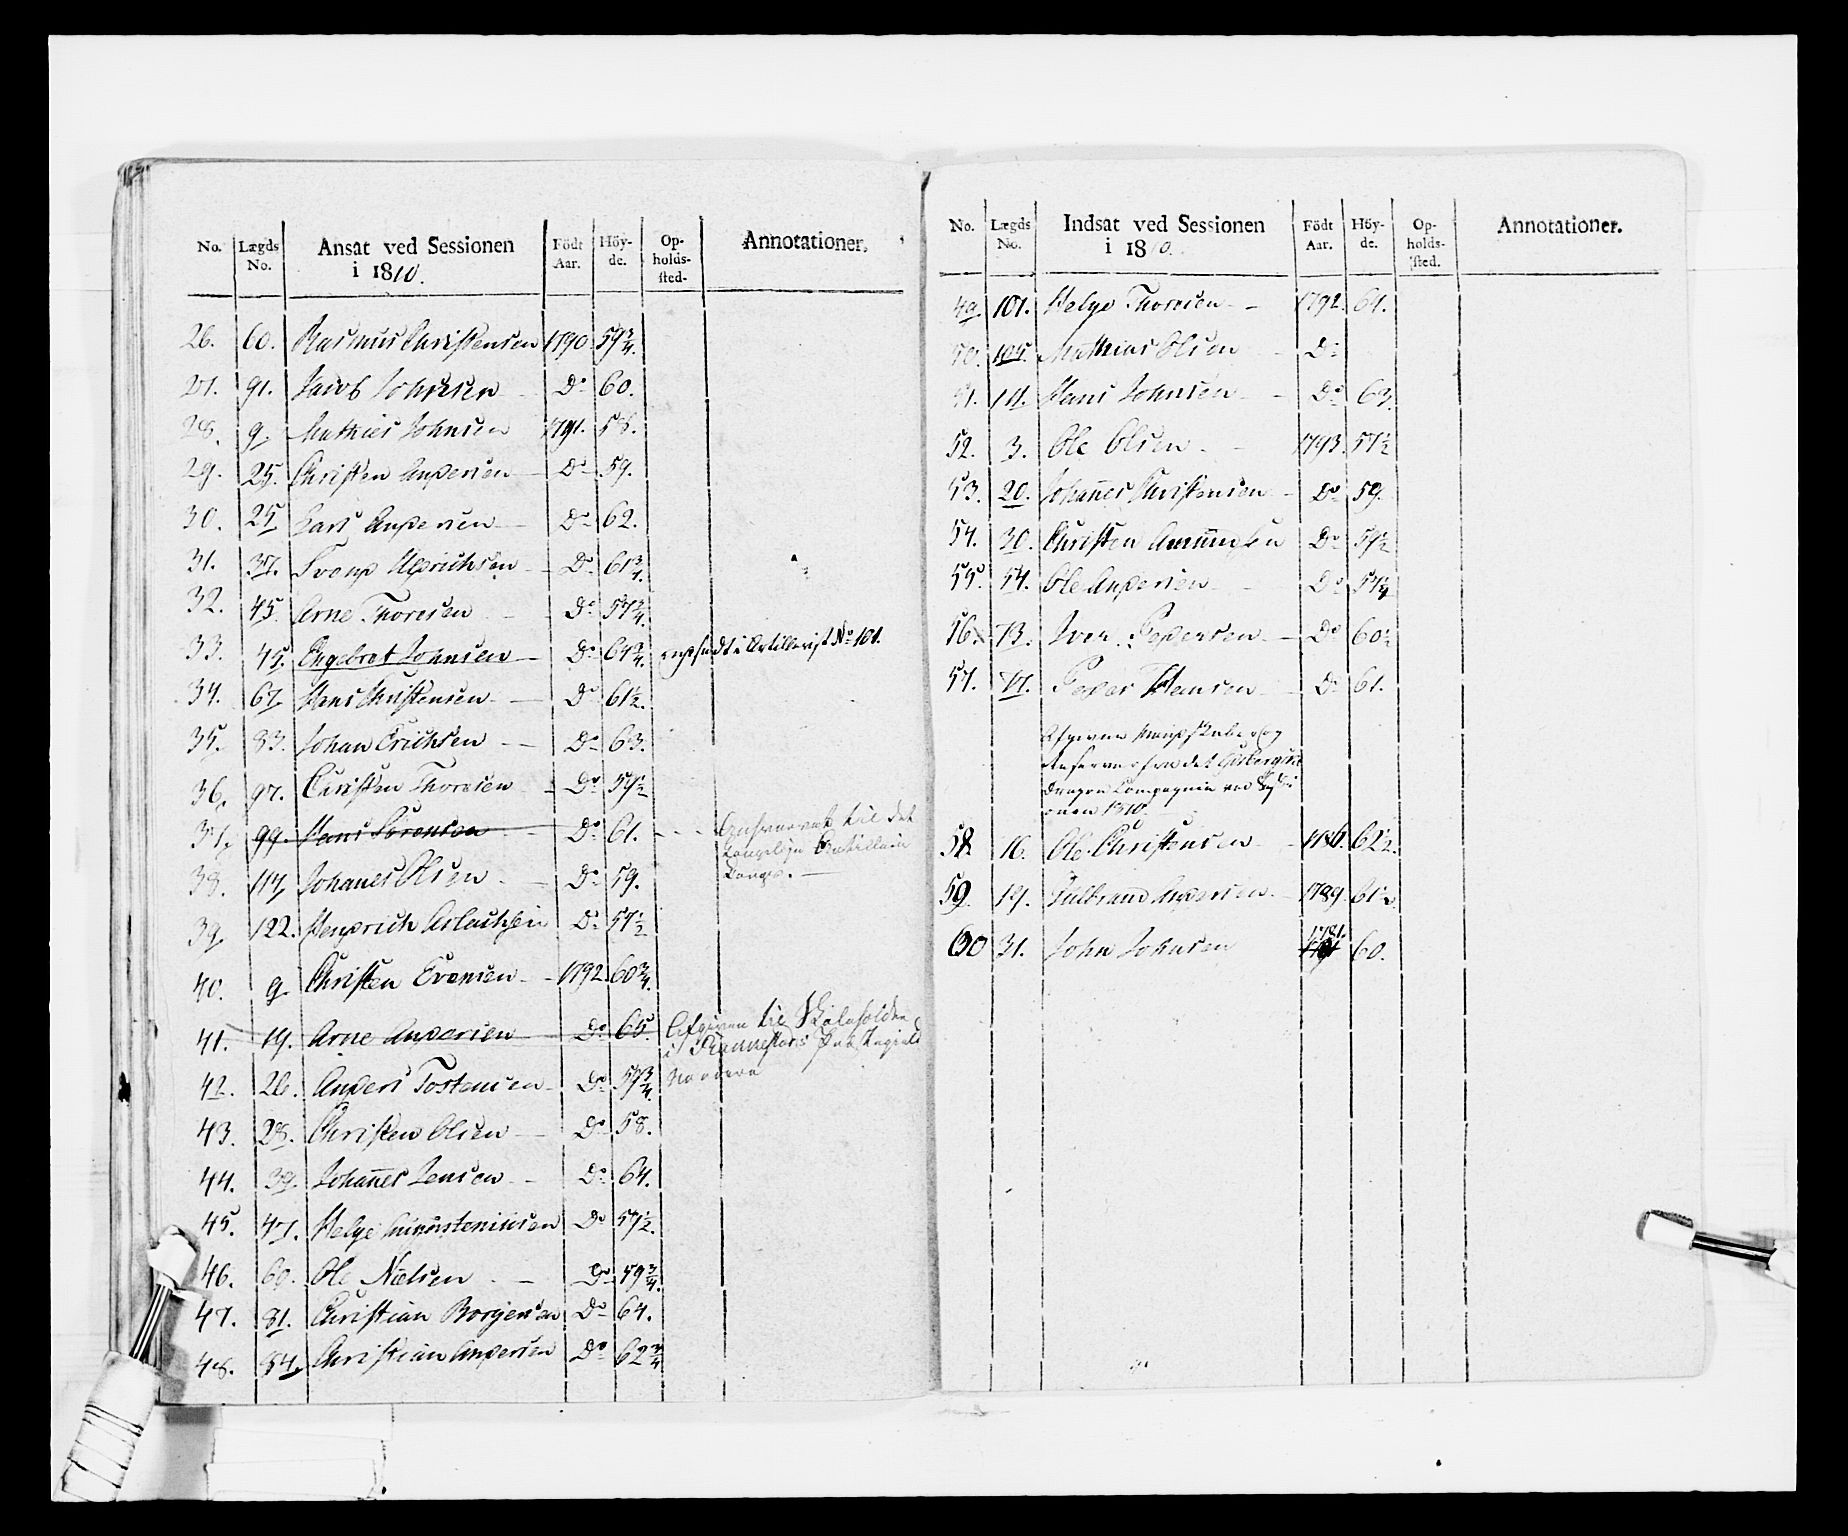 No. Lægds No. Ansat ved Sessionen i 1810. Födt Aar. Höyde. Opholdssted. Annotationer.
26. 60. Rasmus Christensen 1790. 59 3/4.
27. 91. Jacob Johnsen Do 60.
28. 9. Mathies Johnsen 1791. 58.
29. 25. Christen Andersen Do 59.
30. 25 Lars Andersen Do 62.
31. 37. Svend Aldrichsen Do 61 3/4.
32. 45. Arne Thoresen Do 57 3/4.
33. 45. Engebret Johnsen Do 64 3/4. i Artillerist No 101.
34. 67. Hans Christensen Do 61 1/2.
35. 83. Johan Erichsen Do 63.
36. 97. Christen Thoresen Do 59 1/2
37. 99. Hans Sörensen Do 61. til det
Kongelige Artillerie
Corps.
38. 117. Johanes Olsen Do 59.
39. 122. Hendrich Aslachsen Do 57 1/2
40. 9. Christen Evensen 1792. 60 3/4.
41. 19. Arne Andersen Do 65. Afgiven til
i
42. 26. Anders Tostensen Do 57 3/4.
43. 28. Christen Olsen Do 58.
44. 39. Johannes Jensen Do 64.
45. 47. Helge Do 57 1/2.
46. 60. Ole Nielsen Do 59 3/4.
47. 81. Christian Borgersen Do 64.
48. 84. Christian Andersen Do 62 3/4
No. Lægds No. Indsat ved Sessionen i 1810. Födt Aar. Höyde. Opholdssted. Annotationer.
49. 101. Helge Thoresen 1792. 61.
50. 105. Mathias Olsen Do
51. 111. Hans Johnsen Do 63.
52. 3. Ole Olsen 1793. 57 1/2
53. 20. Johannes Christensen Do 59.
54. 30. Christen Amundsen Do 57 1/2
55. 54. Ole Andersen Do 57 3/4
56. 73. Iver Pedersen Do 60 1/2
57. 77. Peder Hansen Do 61.
Afgivne Mandskaber og
Reserver fra det
Dragon Compagnie ved Sessi
onen 1810.
58. 16. Ole Christensen 1786. 62 1/2.
59. 19. Gulbrand Andersen 1789. 61 1/2.
60 31. John Johnsen 1781. 60.